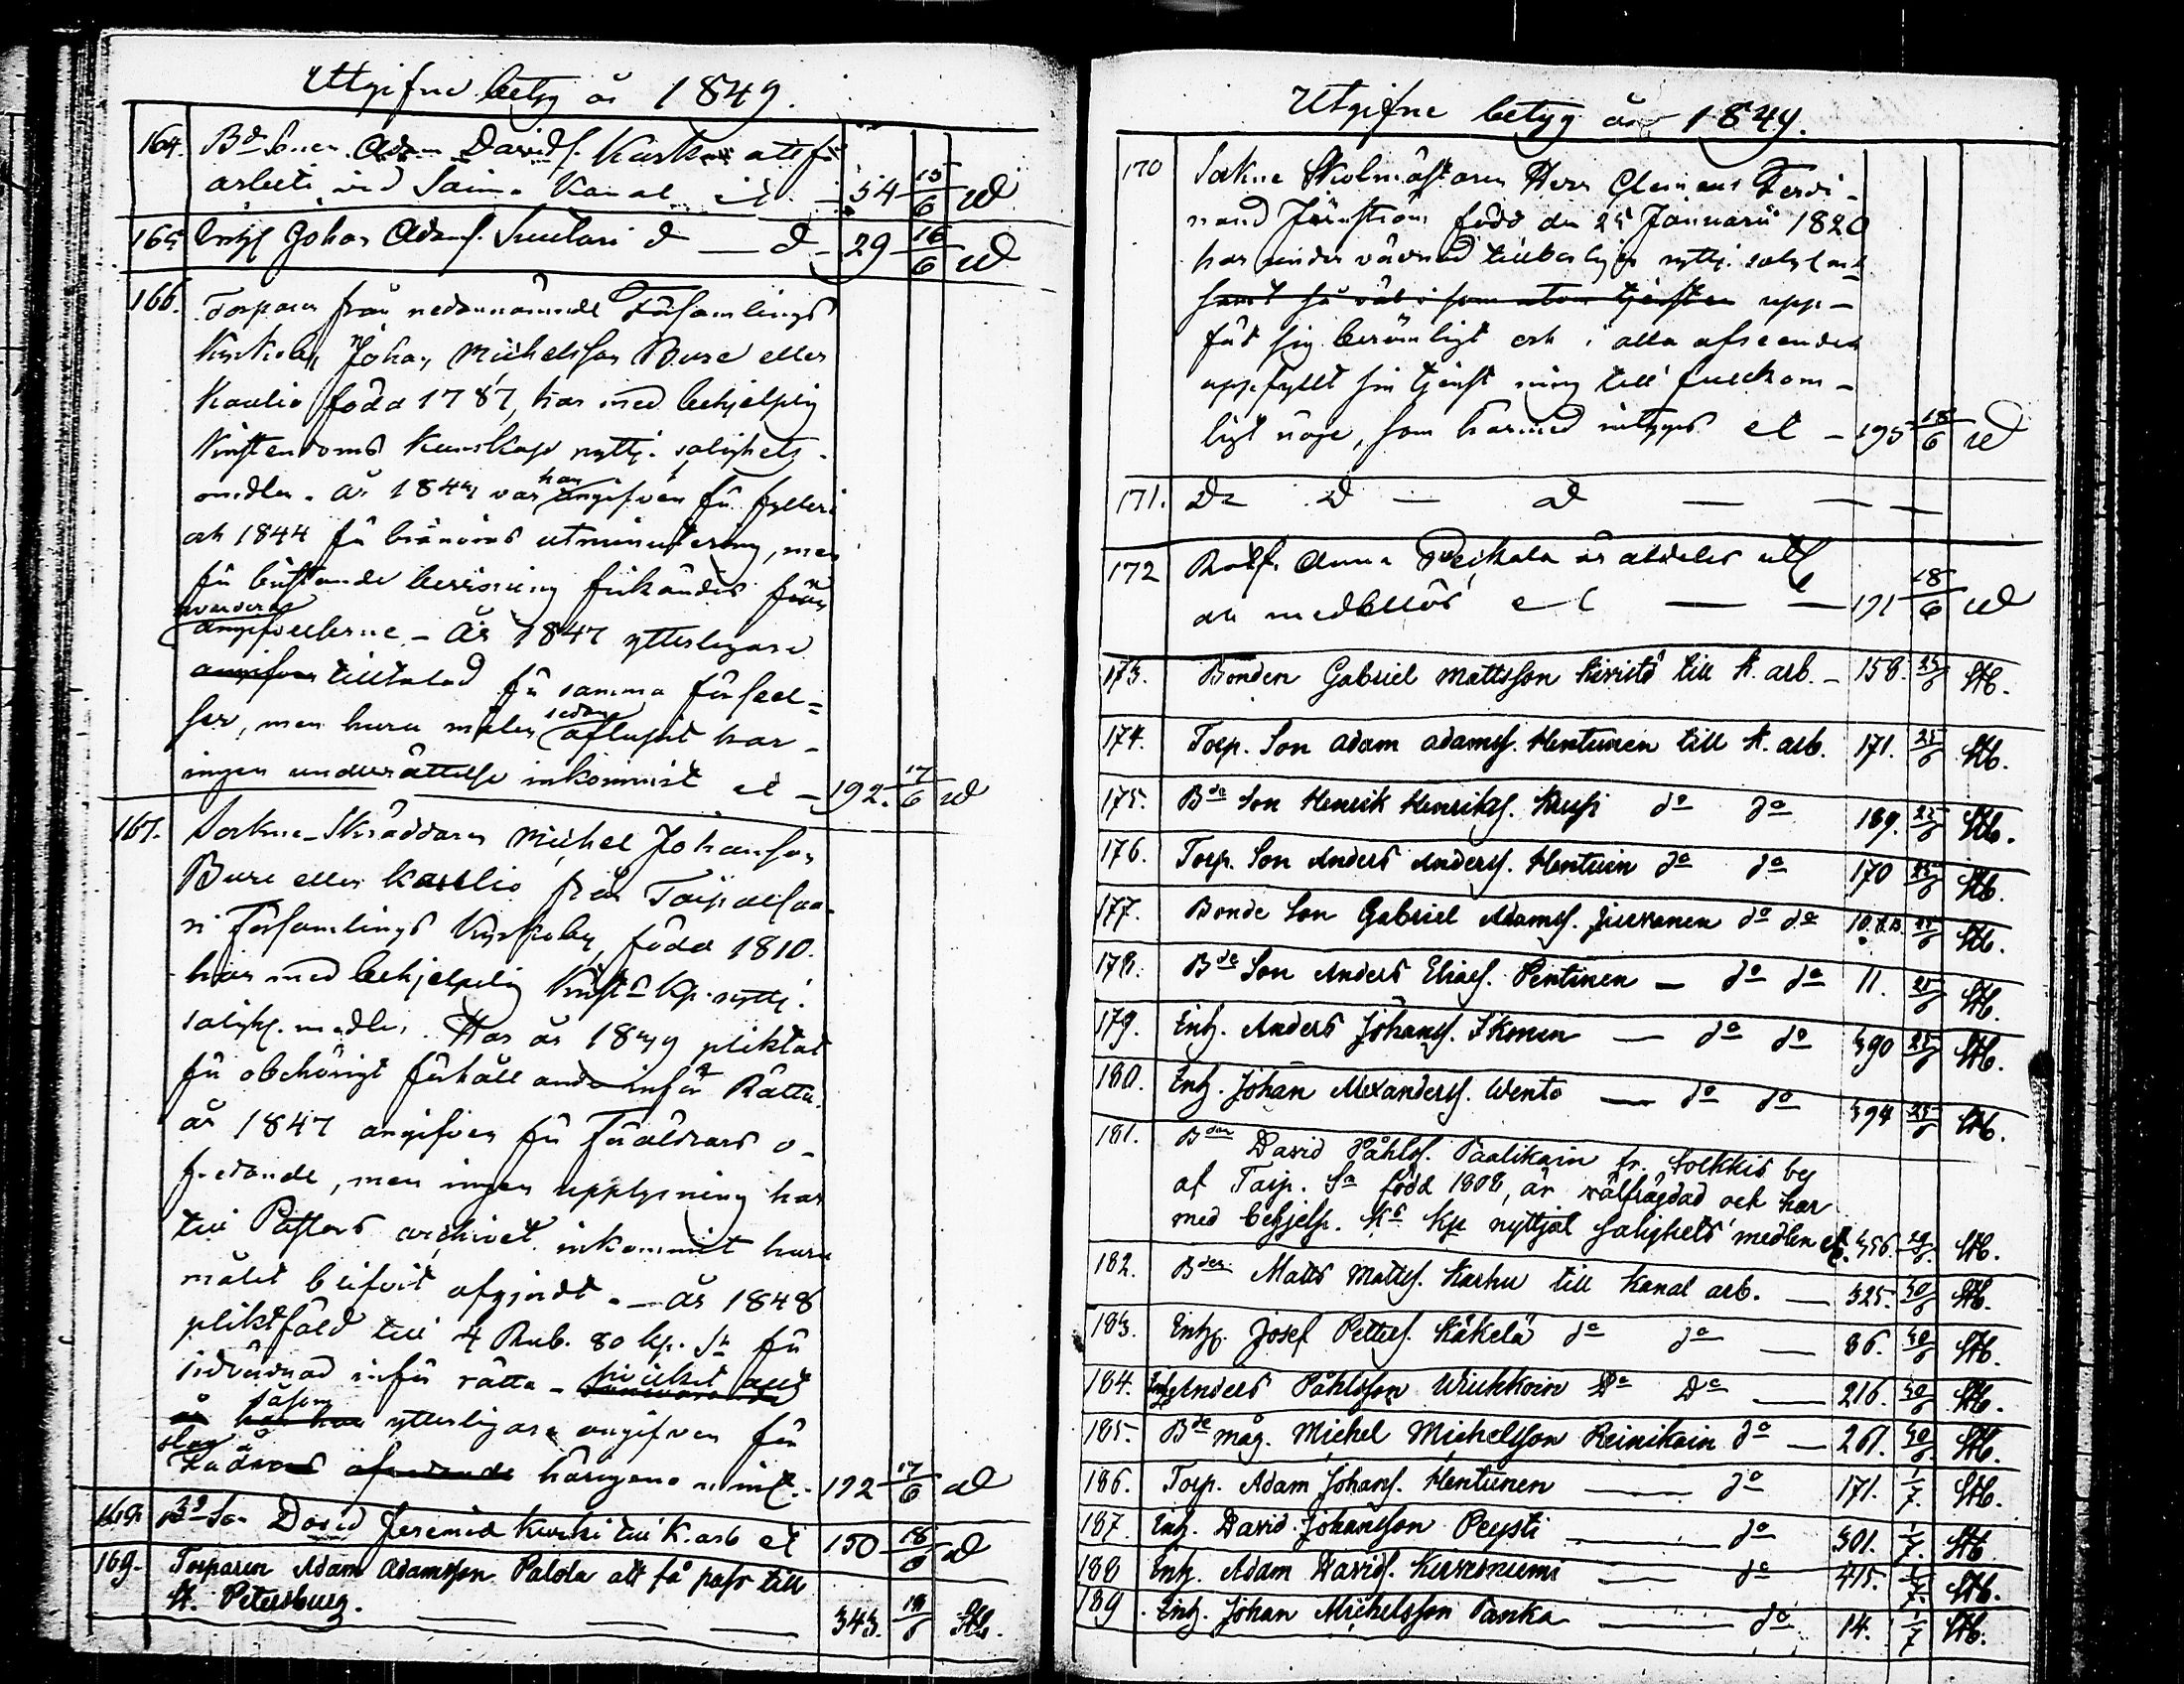 Utgifne betyg år 1849.
164. Bde Sonen Adam Davids. att få
arbete vid Saima Kanal et. - 54 15/6 
165 Inhs Johan Adams. Suutari d — d - 29 16/6 
166. Torparen från nedannämnde Församlings
Kyrkoby Johan Michelsson Bure eller
Kaulio född 1787, har med behjelplig
Kristendoms Kunskap nyttj. salighets-
medlen. År var han angifven för fylleri
och 1844 för bränvins utminutering, men
för bristande bevisning frikändes från
angifvelserne - År 1847 ytterligare
angifven tilltalad för samma förseel=
ser, men huru målen sedan aflupit har
ingen underrättelse inkommit et - 192. 17/6 
167. Sockne-Skräddaren Michel Johansson
Bure eller Kaulio från Taipalsaa-
ri Församlings Kyrkoby, född 1810.
har med behjelplig Krist. Kp. nyttj.
saligh. medlen. Har år pliktat
för obehörigt förhållande inför Rätta.
år 1847 angifven för Föräldrars o-
fredande, men ingen upplysning har
till Pastors archivet inkommit huru
målet blifvit afgjordt. — år 1848
pliktfäld till 4 Rub. 80 kp. Sr för
inför rätta -
såsom ytterligare angifven för
härigenom 192 17/6
Bde Son David Jeremias. Kurki till K. arb et 150 18/6
169. Torparen Adam Adamsson Palola att få pass till
St. Petersburg. — — — 343. 19/6 Stb.
Utgifne betyg år 1849.
170 Sockne Skolmästaren Herr Clemens Ferdi-
nand född den 25 Januarii 1820
har under vårvård tillbörligen nyttj. salighets
samt så väl i som utom tjensten upp-
fört sig berömligt och i alla afseenden
uppfyllt sin tjenst till fullkom-
ligt nöje, som härmed intygas et - 195 18/6 
171. D d — d — —
172 Anna är aldeles utf
och medellös et — — 191 18/6 
173. Bonden Gabriel Mattsson Kiristö till K. arb. - 158. 25/6 Stb.
174. Torp. Son Adam Adamss. Hentunen till K. arb. 171. 25/6 Stb.
175. Bde Son Henrik Henrikss. do do 189. 25/6 Stb.
176. Torp. Son Anders Anderss. Hentuin do do 170 25/6 Stb.
177. Bonde Son Gabriel Adamss. Juvonen do do 25/6 Stb.
178. Bde Son Anders Eliass. Pentinen — do do 11. 25/6 Stb.
179. Inh. Anders Johanss. Ikonen — do do 390 25/6 Stb.
180. Inh. Johan Alexanderss. Wento — do do 394 25/6 Stb.
181. Bden David Påhlss. Paalikain fr. Solkkis by
af Taip. Sn född 1808, är välfrägdad och har
med behjelp. Ks Kp nyttjat salighets medlen et. 356. 29/6 Stb.
182. Bden Matts Mattss. Karhu till Kanal arb. — 325. 30/6 Stb.
183. Inh. Josef Petterss. Käkelä do do — 86. 30/6 Stb.
184. Inh Anders Påhlsson Wiukkoin Do Do — 216. 30/6 Stb.
185. Bde måg. Michel Michelsson Reinikain do — 261. 30/6 Stb.
186. Torp. Adam Johans. Hentunen — do 171. 1/7. Stb.
187. Inh. David Johansson Peysti — do 301. 1/7. Stb
188 Inh. Adam Davids. Kurkniemi — do 415. 1/7. Stb.
189. Inh. Johan Michelsson Panka — do 14. 1/7 Stb.